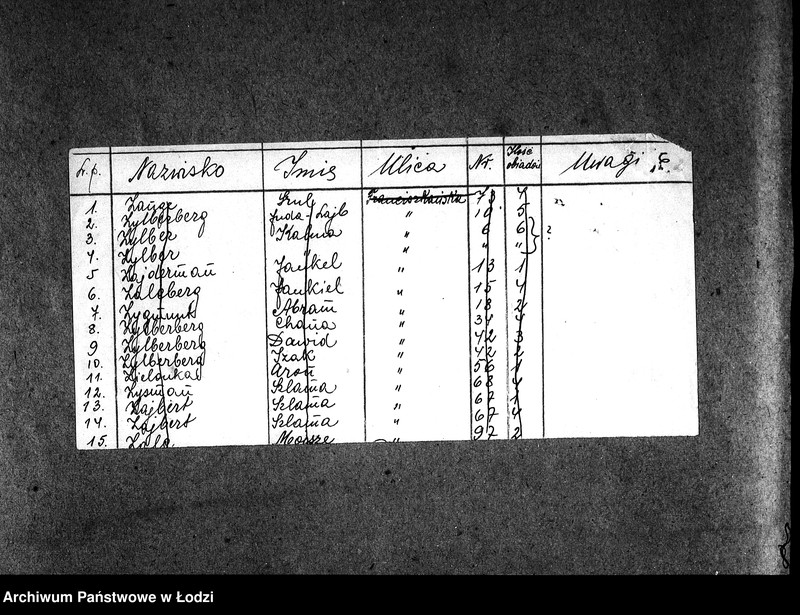 L.p. Nazwisko Imię Ulica Nr. Ilość obiadów Uwagi
1. Szul Franciszkańska 73 7
2. Zylberberg Juda-Lajb " 10 5
3. Zylber Kalma " 6 6 ?
4. Zylber " " " "
5 Zajderman Jankel " 13 1
6. Zalcberg Jankiel " 15 4
7. Zygmunt Abram " 18 2
8. Zylberberg Chana " 34 4
9 Zylberberg Dawid " 42 3
10. Zylberberg Izak " 42 2
11. Zielonka Aron " 56 1
12. Zysman Szlama " 68 4
13. Zajbert Szlama " 67 1
14. Zajbert Szlama " 67 4
15. Mosze " 97 2
Archiwum Państwowe w Łodzi